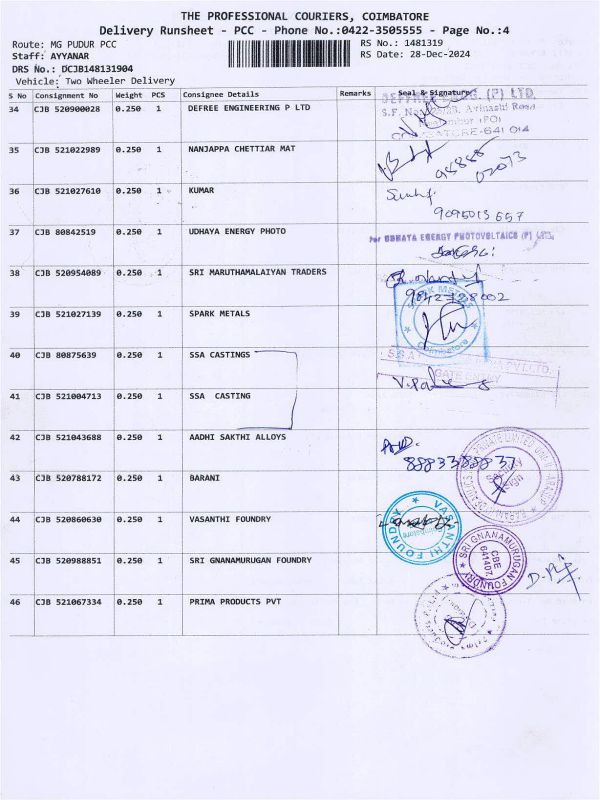 THE PROFESSIONAL COURIERS, COIMBATORE
Delivery Runsheet - PCC - Phone No.:0422-3505555 - Page No.:4
Route: MG PUDUR PCC
RS No.: 1481319
Staff: AYYANAR
RS Date: 28-Dec-2024
DRS No.: DCJB148131904
Vehicle: Two Wheeler Delivery
S No Consignment No Weight PCS Consignee Details Remarks Seal & Signature
34 CJB 520900028 0.250 1 DEFREE ENGINEERING P LTD
(P) LTD.
Avinashi Road
(PO)
641 014
35 CJB 521022989 0.250 1 NANJAPPA CHETTIAR MAT
98888
02073
36 CJB 521027610 0.250 1 KUMAR
9095013 657
37 CJB 80842519 0.250 1 UDHAYA ENERGY PHOTO
For UDHAYA ENERGY PHOTOVOLTAICS (P) LTD.,
38 CJB 520954089 0.250 1 SRI MARUTHAMALAIYAN TRADERS
9842728002
39 CJB 521027139 0.250 1 SPARK METALS
SPARK METALS
Coimbatore
40 CJB 80875639 0.250 1 SSA CASTINGS
PVT LTD.
GATE ENTRY
41 CJB 521004713 0.250 1 SSA CASTING
42 CJB 521043688 0.250 1 AADHI SAKTHI ALLOYS
8883388837
43 CJB 520788172 0.250 1 BARANI
44 CJB 520860630 0.250 1 VASANTHI FOUNDRY
VASANTHI FOUNDRY
45 CJB 520988851 0.250 1 SRI GNANAMURUGAN FOUNDRY
SRI GNANAMURUGAN FOUNDRY
CBE
641407
46 CJB 521067334 0.250 1 PRIMA PRODUCTS PVT